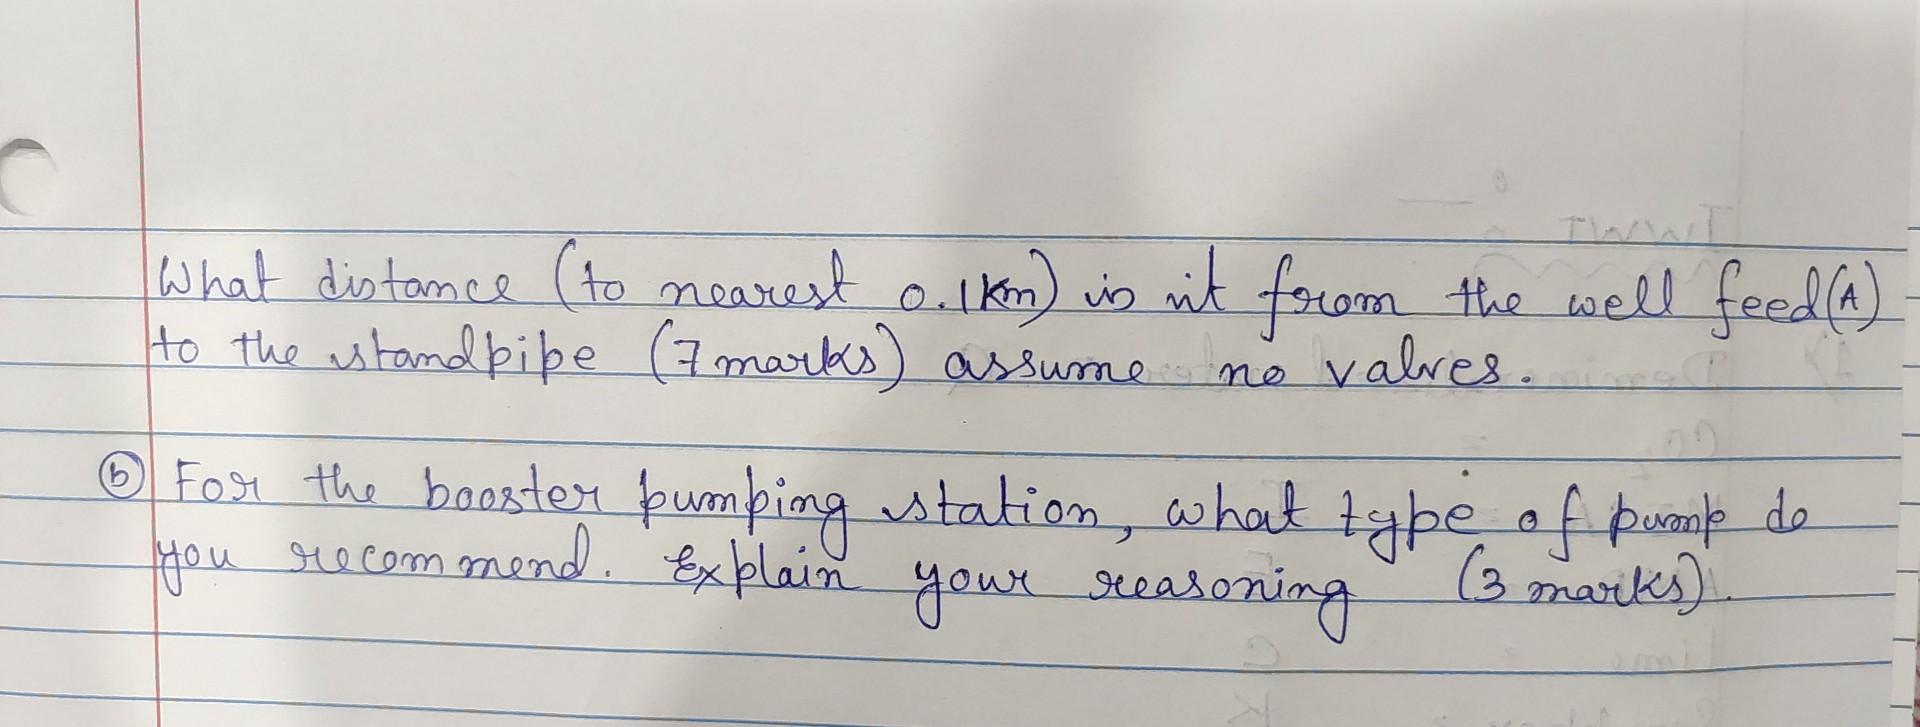 What distance (to nearest 0.1km) is it from the well feed(A)
to the standpipe (7 marks) assume no valves.
(b) For the booster pumping station, what type of pump do
you recommend. Explain your reasoning (3 marks).